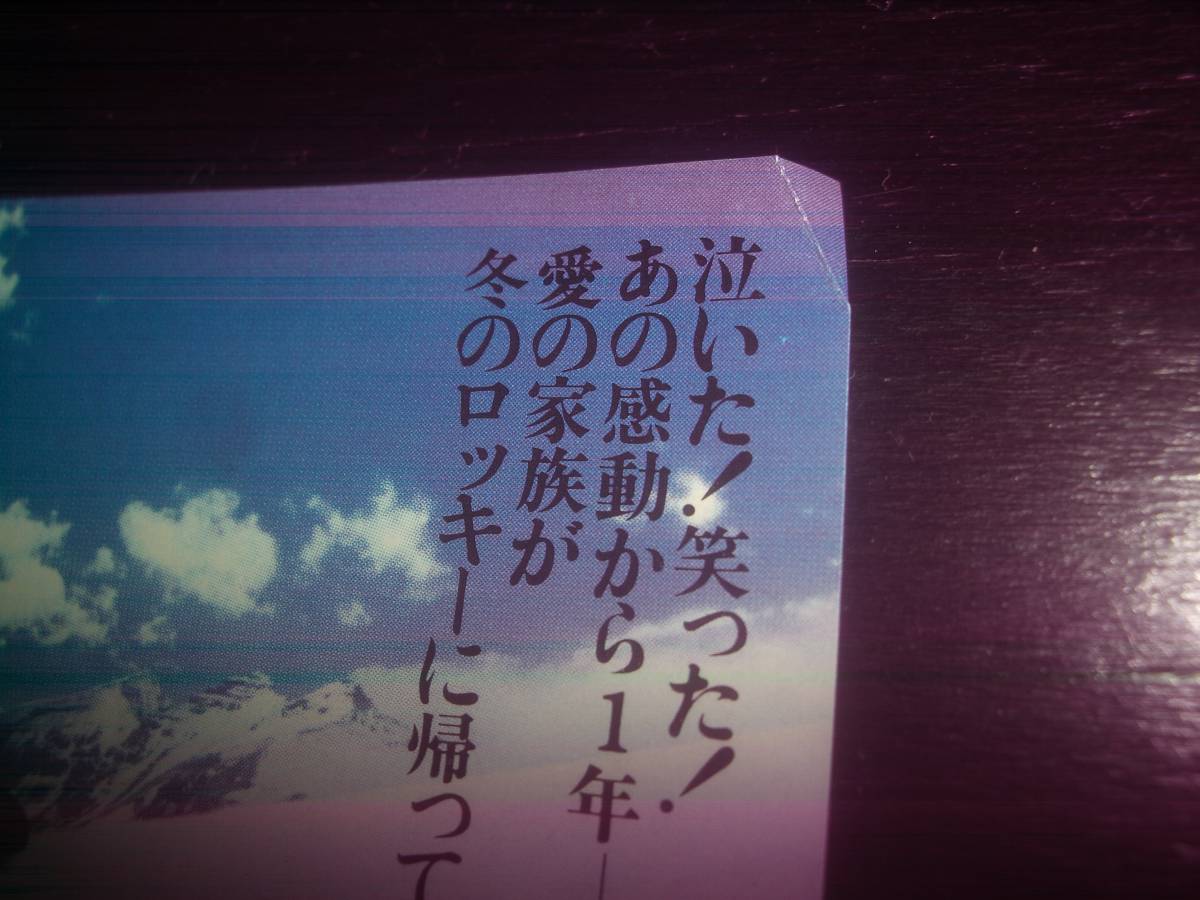 泣いた！笑った！
あの感動から1年―
愛の家族が
冬のロッキーに帰って